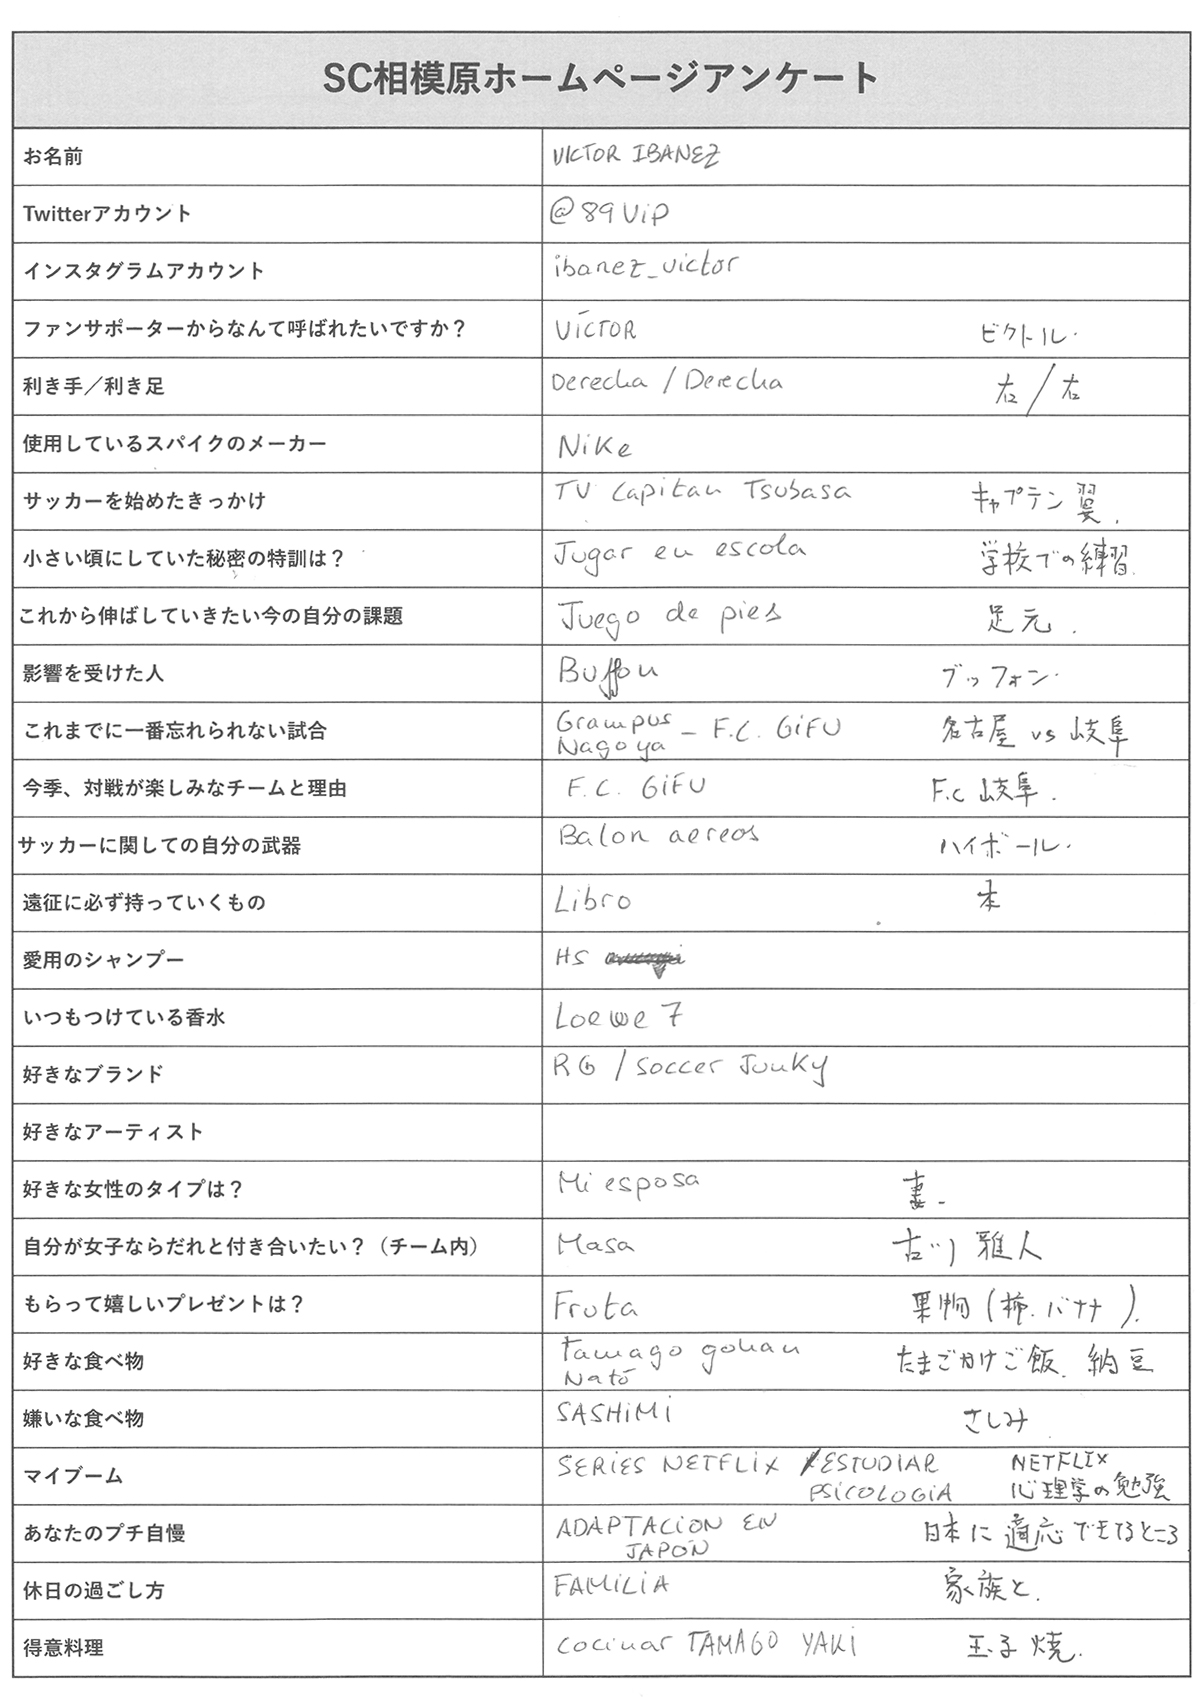 SC相模原ホームページアンケート
お名前 VICTOR IBANEZ
Twitterアカウント @89ViP
インスタグラムアカウント ibanez_victor
ファンサポーターからなんて呼ばれたいですか? VÍCTOR ビクトル.
利き手／利き足 Derecha / Derecha 右/右
使用しているスパイクのメーカー Nike
サッカーを始めたきっかけ TV Capitan Tsubasa キャプテン翼.
小さい頃にしていた秘密の特訓は? Jugar en escola 学校での練習.
これから伸ばしていきたい今の自分の課題 Juego de pies 足元.
影響を受けた人 Buffon ブッフォン.
これまでに一番忘れられない試合 Grampus Nagoya – F.C. GiFU 名古屋 vs 岐阜
今季、対戦が楽しみなチームと理由 F.C. GiFU F.C 岐阜.
サッカーに関しての自分の武器 Balon aereos ハイボール.
遠征に必ず持っていくもの Libro 本
愛用のシャンプー HS
いつもつけている香水 Loewe 7
好きなブランド RG / Soccer Junky
好きなアーティスト
好きな女性のタイプは? Mi esposa 妻.
自分が女子ならだれと付き合いたい?（チーム内） Masa 古川 雅人
もらって嬉しいプレゼントは? Fruta 果物(柿.バナナ).
好きな食べ物 Tamago gohan たまごかけご飯. 納豆
Nató
嫌いな食べ物 SASHiMi さしみ
マイブーム SERiES NETFLiX /ESTUDiAR NETFLIX
PSiCOLOGiA 心理学の勉強
あなたのプチ自慢 ADAPTACiON EN 日本に適応できてるところ
JAPÓN
休日の過ごし方 FAMiLiA 家族と.
得意料理 cocinar TAMAGO YAKi 玉子焼.